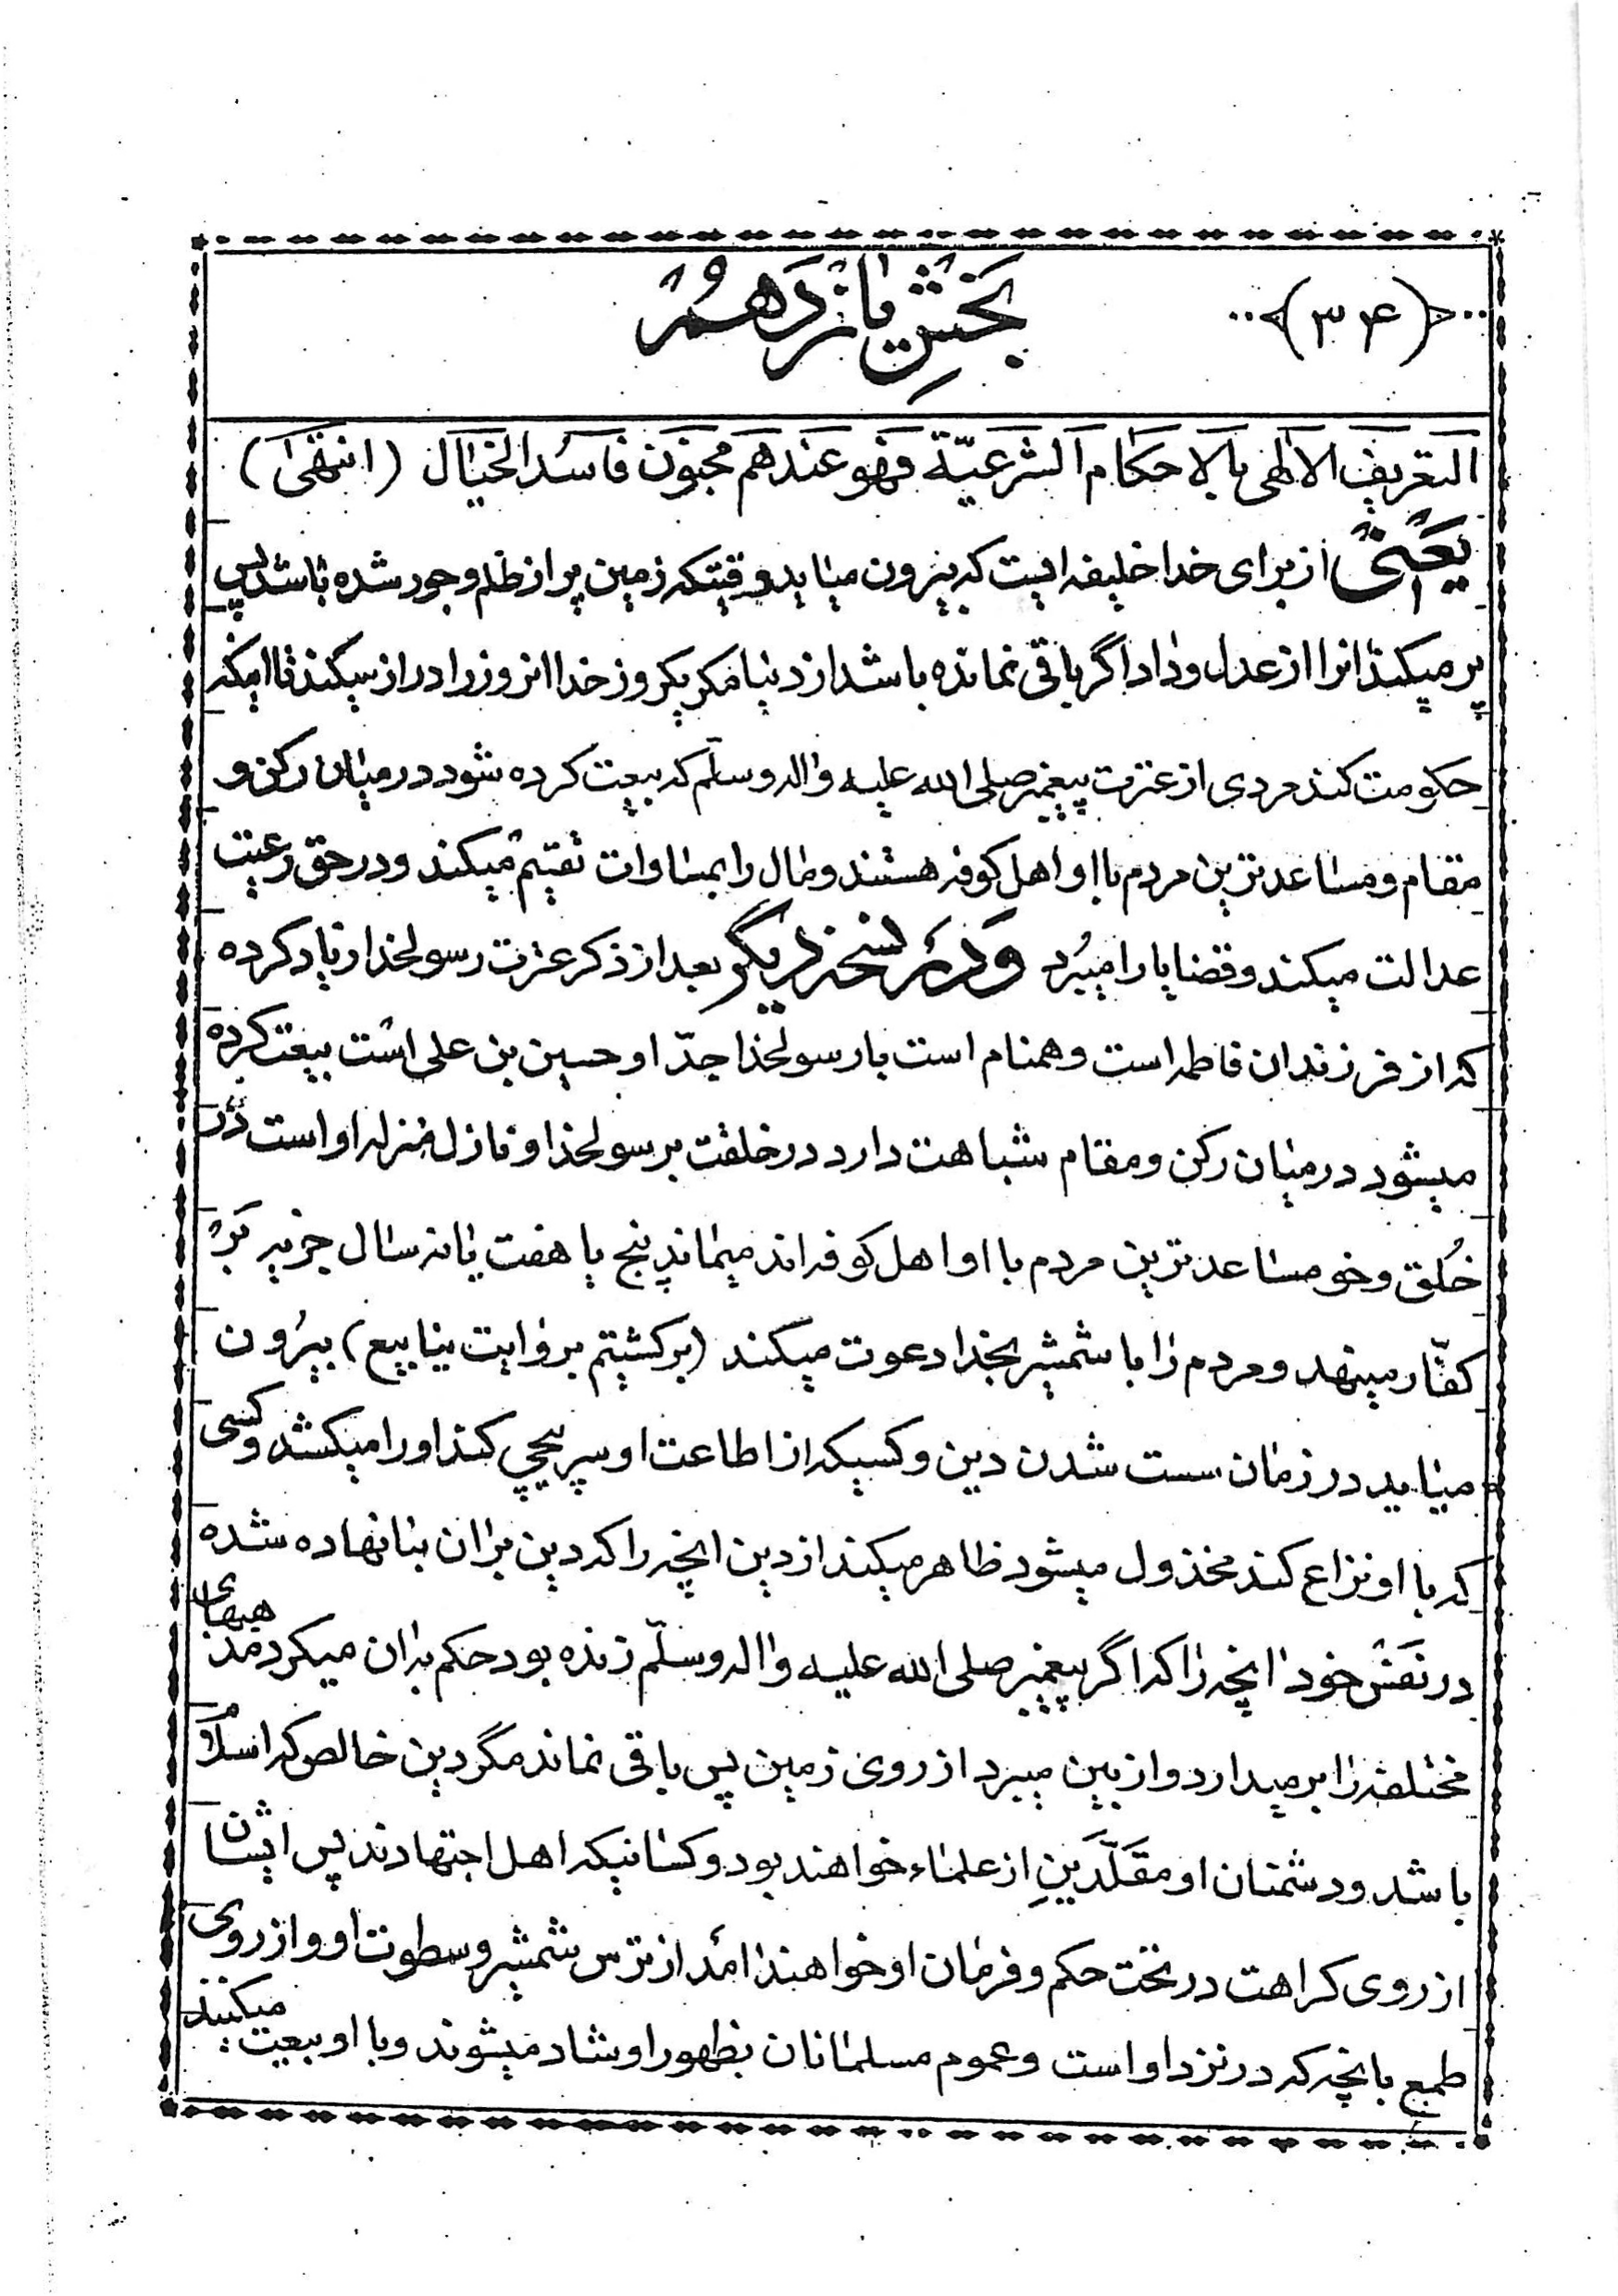 (۳۴)
بخش یازدهم
التعریف الالهی بالاحکام الشرعیّة فهو عندهم مجنون فاسد الخیال (انتهی)
یعنی از برای خدا خلیفه ایست که بیرون میاید وقتیکه زمین پر از ظلم و جور شده باشد پس
پر میکند انرا از عدل و داد اگر باقی نمانده باشد از دنیا مگر یکروز خدا انروز را دراز میکند تا اینکه
حکومت کند مردی از عترت پیغمبر صلی الله علیه واله وسلّم که بیعت کرده شود در میان رکن و
مقام و مساعدترین مردم با او اهل کوفه هستند و مال را بمساوات تقسیم میکند و در حق رعیت
عدالت میکند و قضایا را میبرد ودر نسخه دیگر بعد از ذکر عترت رسولخدا زیاد کرده
که از فرزندان فاطمه است و همنام است با رسولخدا جدّ او حسین بن علی است بیعت کرده
میشود در میان رکن و مقام شباهت دارد در خلقت برسولخدا و نازل منزله او است در
خُلق و خو مساعدترین مردم با او اهل کوفه اند میماند پنج یا هفت یا نه سال جزیه بر
کفّار مینهد و مردم را با شمشیر بخدا دعوت میکند (برگشتم بروایت ینابیع) بیرون
میاید در زمان سست شدن دین و کسیکه از اطاعت او سرپیچی کند او را میکشد و کسی
که با او نزاع کند مخذول میشود ظاهر میکند از دین انچه را که دین بران بنا نهاده شده
در نفس خود انچه را که اگر پیغمبر صلی الله علیه واله وسلّم زنده بود حکم بدان میکرد مذهبهای
مختلفه را بر میدارد و از بین میبرد از روی زمین پس باقی نماند مگر دین خالص که اسلام
باشد و دشمنان او مقلّدینِ از علماء خواهند بود و کسانیکه اهل اجتهادند پس ایشان
از روی کراهت در تحت حکم و فرمان او خواهند امد از ترس شمشیر و سطوت او و از روی
طمع بانچه که در نزد او است و عموم مسلمانان بظهور او شاد میشوند و با او بیعت میکنند